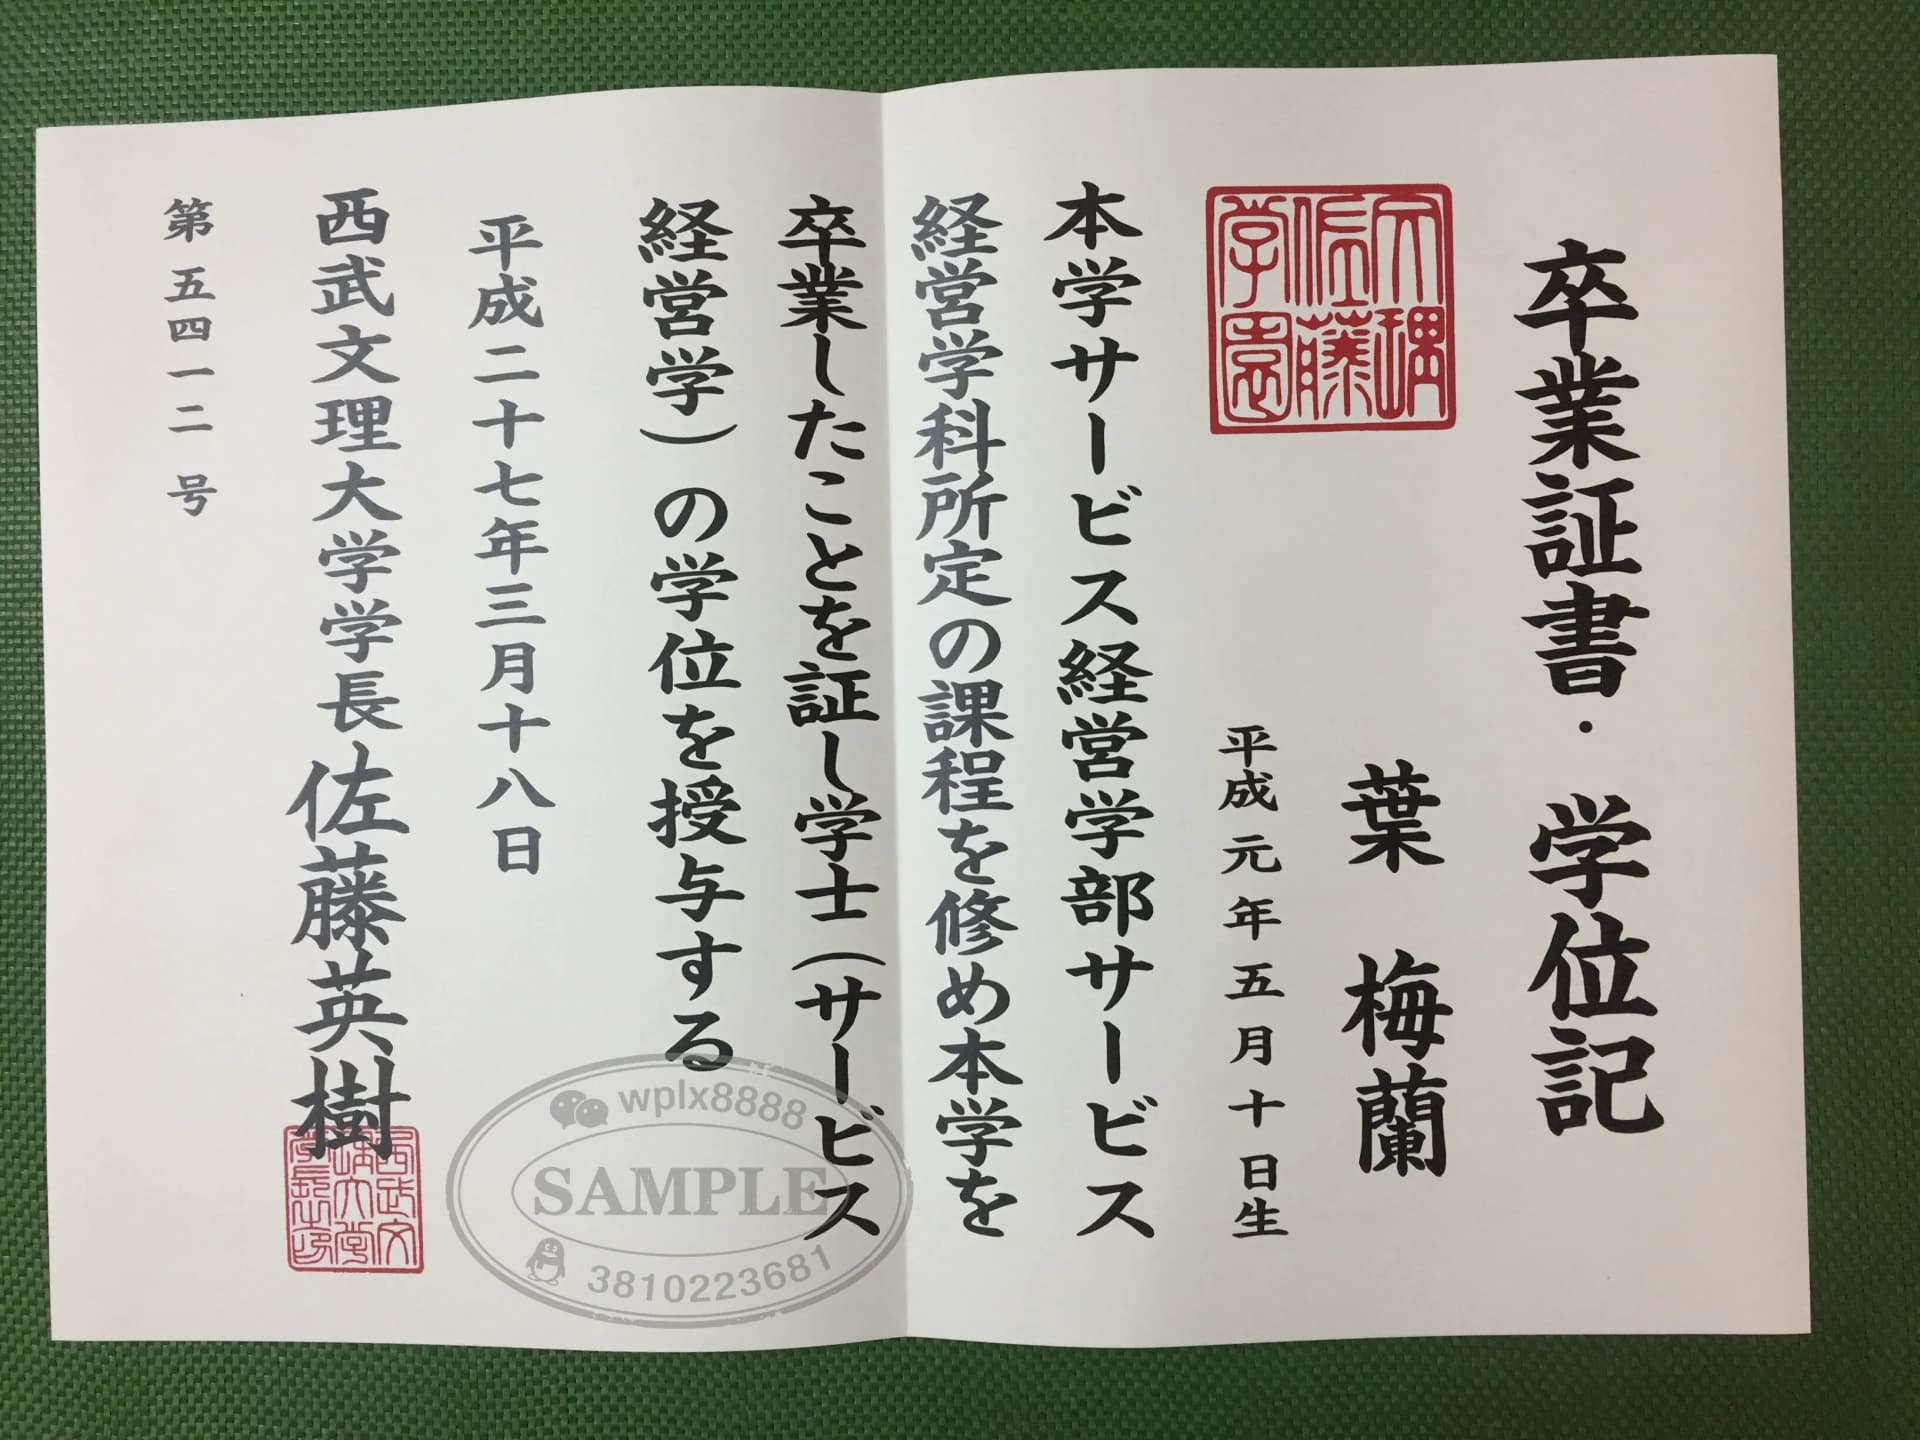 卒業証書・学位記
文理
佐藤
学園
葉 梅蘭
平成元年五月十日生
本学サービス経営学部サービス
経営学科所定の課程を修め本学を
卒業したことを証し学士(サービス
経営学)の学位を授与する
平成二十七年三月十八日
西武文理大学学長佐藤英樹
第五四一二号
wplx8888
SAMPLE
3810223681